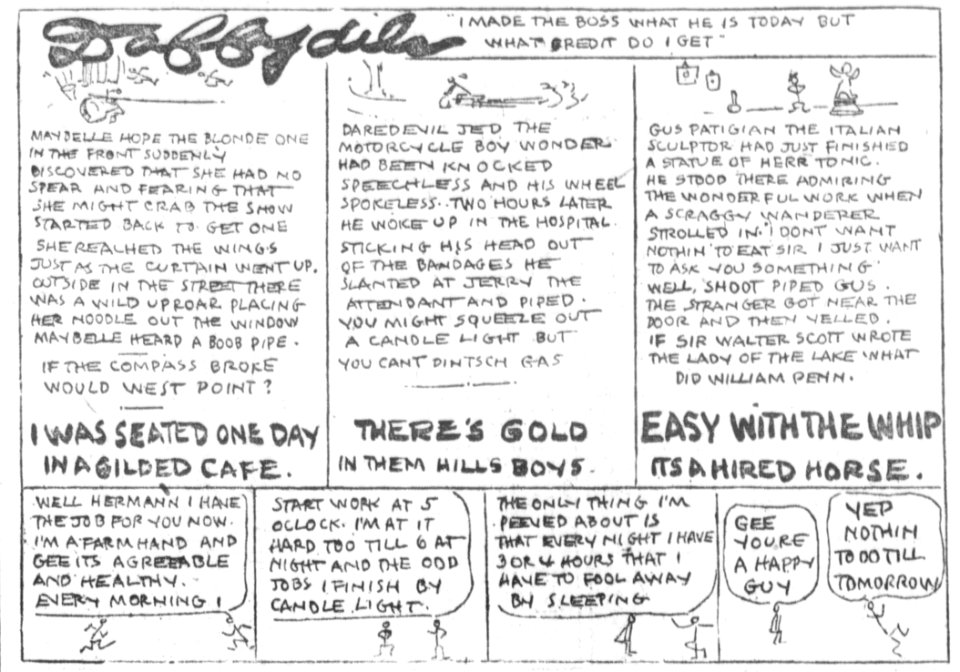 Daffydils
"I MADE THE BOSS WHAT HE IS TODAY BUT
WHAT CREDIT DO I GET"
MAYBELLE HOPE THE BLONDE ONE
IN THE FRONT SUDDENLY
DISCOVERED THAT SHE HAD NO
SPEAR AND FEARING THAT
SHE MIGHT CRAB THE SHOW
STARTED BACK TO GET ONE
SHE REACHED THE WINGS
JUST AS THE CURTAIN WENT UP.
OUTSIDE IN THE STREET THERE
WAS A WILD UPROAR PLACING
HER NOODLE OUT THE WINDOW
MAYBELLE HEARD A BOOB PIPE.
IF THE COMPASS BROKE
WOULD WEST POINT?
I WAS SEATED ONE DAY
IN A GILDED CAFE.
DAREDEVIL JED THE
MOTORCYCLE BOY WONDER
HAD BEEN KNOCKED
SPEECHLESS AND HIS WHEEL
SPOKELESS. TWO HOURS LATER
HE WOKE UP IN THE HOSPITAL.
STICKING HIS HEAD OUT
OF THE BANDAGES HE
SLANTED AT JERRY THE
ATTENDANT AND PIPED.
YOU MIGHT SQUEEZE OUT
A CANDLE LIGHT BUT
YOU CANT DINTSCH GAS
THERE'S GOLD
IN THEM HILLS BOYS.
GUS PATIGIAN THE ITALIAN
SCULPTOR HAD JUST FINISHED
A STATUE OF HERR TONIC.
HE STOOD THERE ADMIRING
THE WONDERFUL WORK WHEN
A SCRAGGY WANDERER
STROLLED IN. "I DONT WANT
NOTHIN' TO EAT SIR I JUST WANT
TO ASK YOU SOMETHING"
WELL, SHOOT PIPED GUS.
THE STRANGER GOT NEAR THE
DOOR AND THEN YELLED.
IF SIR WALTER SCOTT WROTE
THE LADY OF THE LAKE WHAT
DID WILLIAM PENN.
EASY WITH THE WHIP
ITS A HIRED HORSE.
WELL HERMANN I HAVE
THE JOB FOR YOU NOW.
I'M A FARM HAND AND
GEE ITS AGREEABLE
AND HEALTHY.
EVERY MORNING I
START WORK AT 5
OCLOCK. I'M AT IT
HARD TOO TILL 6 AT
NIGHT AND THE ODD
JOBS I FINISH BY
CANDLE LIGHT.
THE ONLY THING I'M
PEEVED ABOUT IS
THAT EVERY NIGHT I HAVE
3 OR 4 HOURS THAT I
HAVE TO FOOL AWAY
BY SLEEPING
GEE
YOURE
A HAPPY
GUY
YEP
NOTHIN
TO DO TILL
TOMORROW